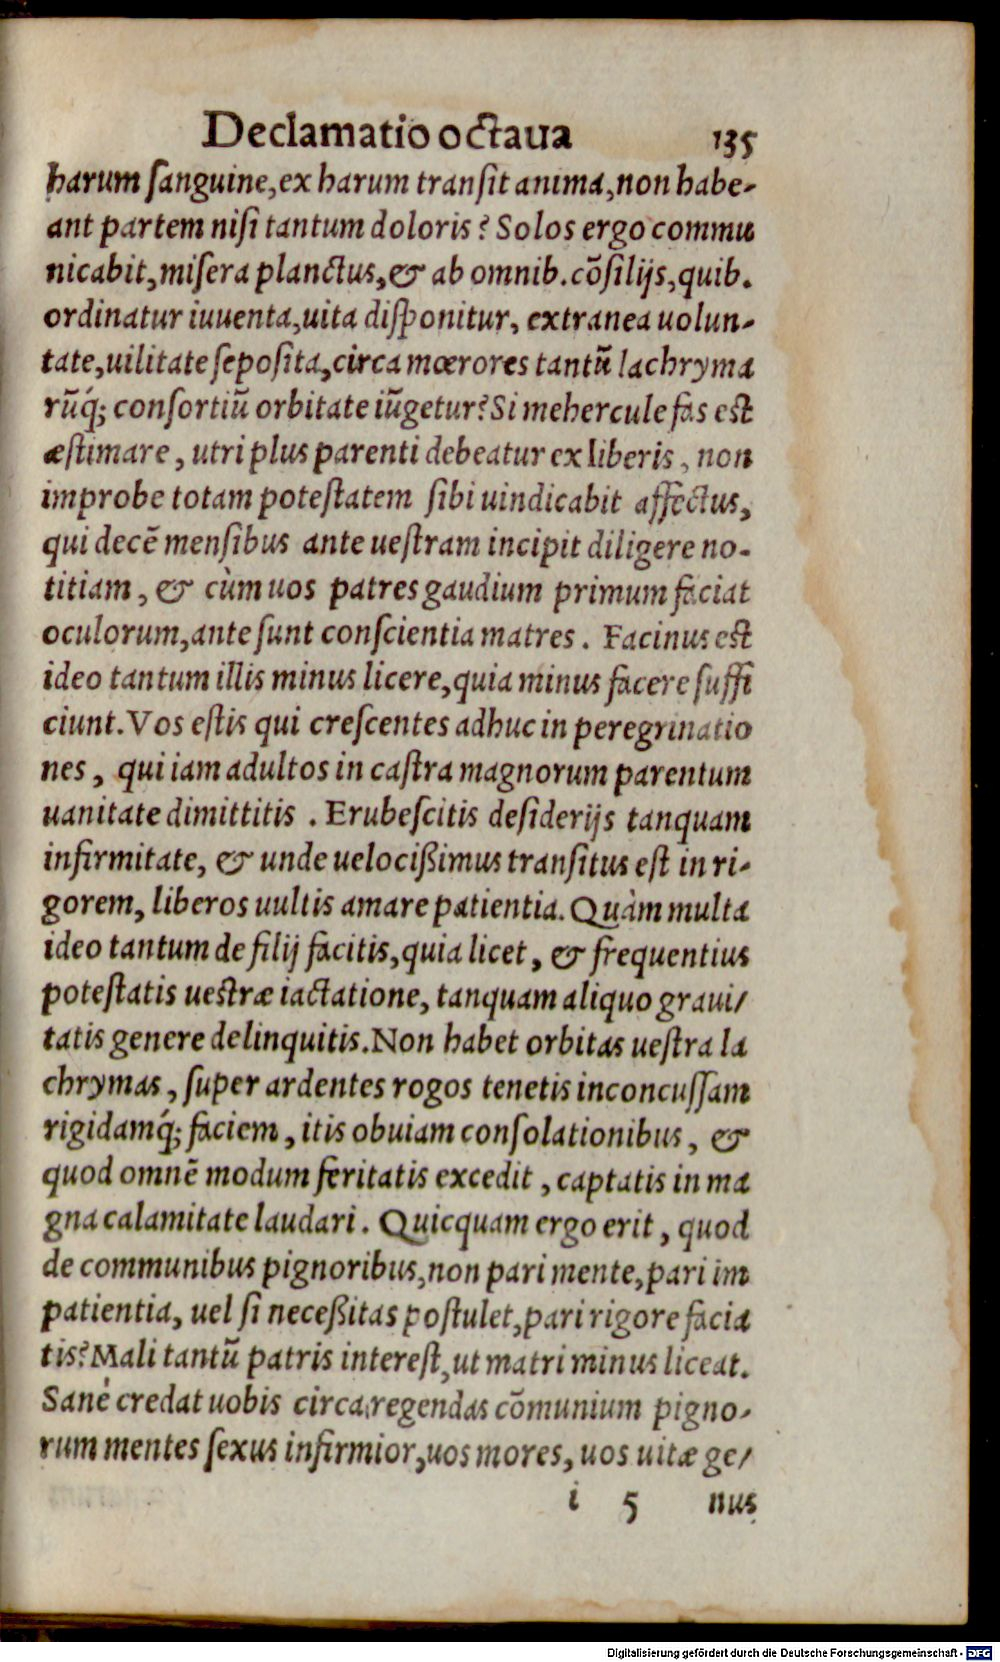 Declamatio octaua 135
harum ſanguine, ex harum tranſit anima, non habe-
ant partem niſi tantum doloris? Solos ergo commu
nicabit, miſera planctus, & ab omnib. cõſilijs, quib.
ordinatur iuuenta, uita diſponitur, extranea uolun-
tate, uilitate ſepoſita, circa mœrores tantũ lachryma
rũq́; conſortiũ orbitate iũgetur? Si mehercule fas est
æſtimare, utri plus parenti debeatur ex liberis, non
improbe totam poteſtatem ſibi uindicabit affectus,
qui decẽ menſibus ante ueſtram incipit diligere no-
titiam, & cùm uos patres gaudium primum faciat
oculorum, ante ſunt conſcientia matres. Facinus est
ideo tantum illis minus licere, quia minus facere ſuffi
ciunt. Vos eſtis qui creſcentes adhuc in peregrinatio
nes, qui iam adultos in caſtra magnorum parentum
uanitate dimittitis. Erubeſcitis deſiderijs tanquam
infirmitate, & unde uelocißimus tranſitus est in ri-
gorem, liberos uultis amare patientia. Quàm multa
ideo tantum de filij facitis, quia licet, & frequentius
poteſtatis ueſtræ iactatione, tanquam aliquo graui/
tatis genere delinquitis. Non habet orbitas ueſtra la
chrymas, ſuper ardentes rogos tenetis inconcuſſam
rigidamq́; faciem, itis obuiam conſolationibus, &
quod omnẽ modum feritatis excedit, captatis in ma
gna calamitate laudari. Quicquam ergo erit, quod
de communibus pignoribus, non pari mente, pari im
patientia, uel ſi neceßitas poſtulet, pari rigore facia
tis? Mali tantũ patris intereſt, ut matri minus liceat.
Sanè credat uobis circa regendas cõmunium pigno-
rum mentes ſexus infirmior, uos mores, uos uitæ ge/
i 5 nus
Digitalisierung gefördert durch die Deutsche Forschungsgemeinschaft - DFG